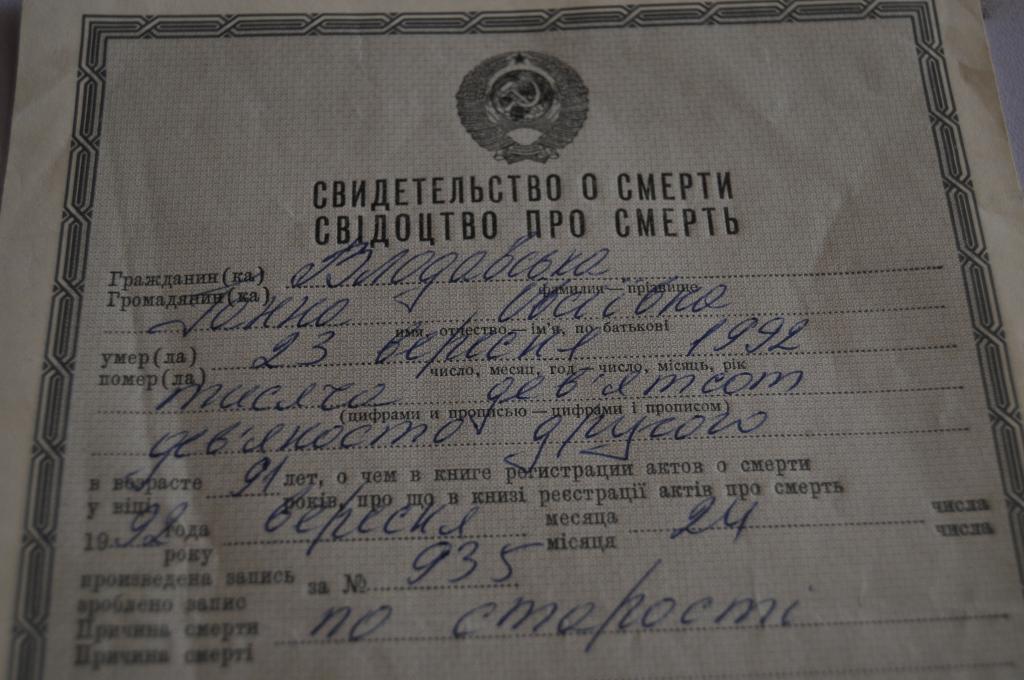 СВИДЕТЕЛЬСТВО О СМЕРТИ
СВІДОЦТВО ПРО СМЕРТЬ
Гражданин(ка)
Громадянин(ка) Влодавська
фамилия — прізвище
имя, отчество — ім'я, по батькові
умер(ла)
помер(ла) 23 вересня 1992
число, месяц, год — число, місяць, рік
тисяча дев'ятсот
(цифрами и прописью — цифрами і прописом)
дев'яносто другого
в возрасте 91 лет, о чем в книге регистрации актов о смерти
у віці років, про що в книзі реєстрації актів про смерть
1992 года вересня месяца 24 числа
року місяця числа
произведена запись за № 935
зроблено запис
Причина смерти по старості
Причина смерті